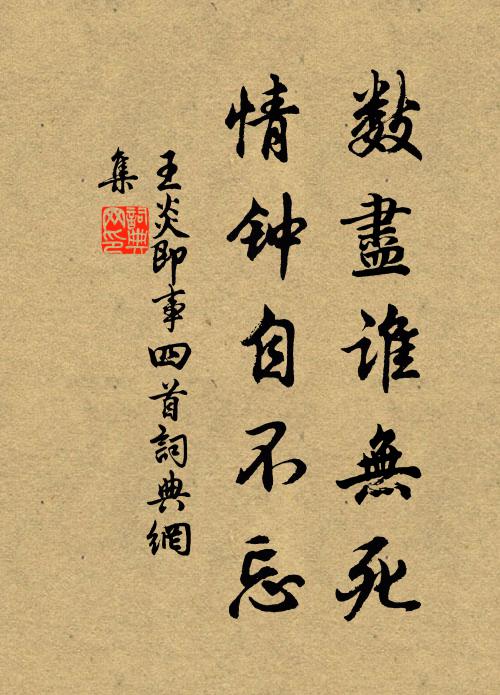 數盡誰無死
情钟自不忘
王炎即事四首詞典網
集
詞典
网印